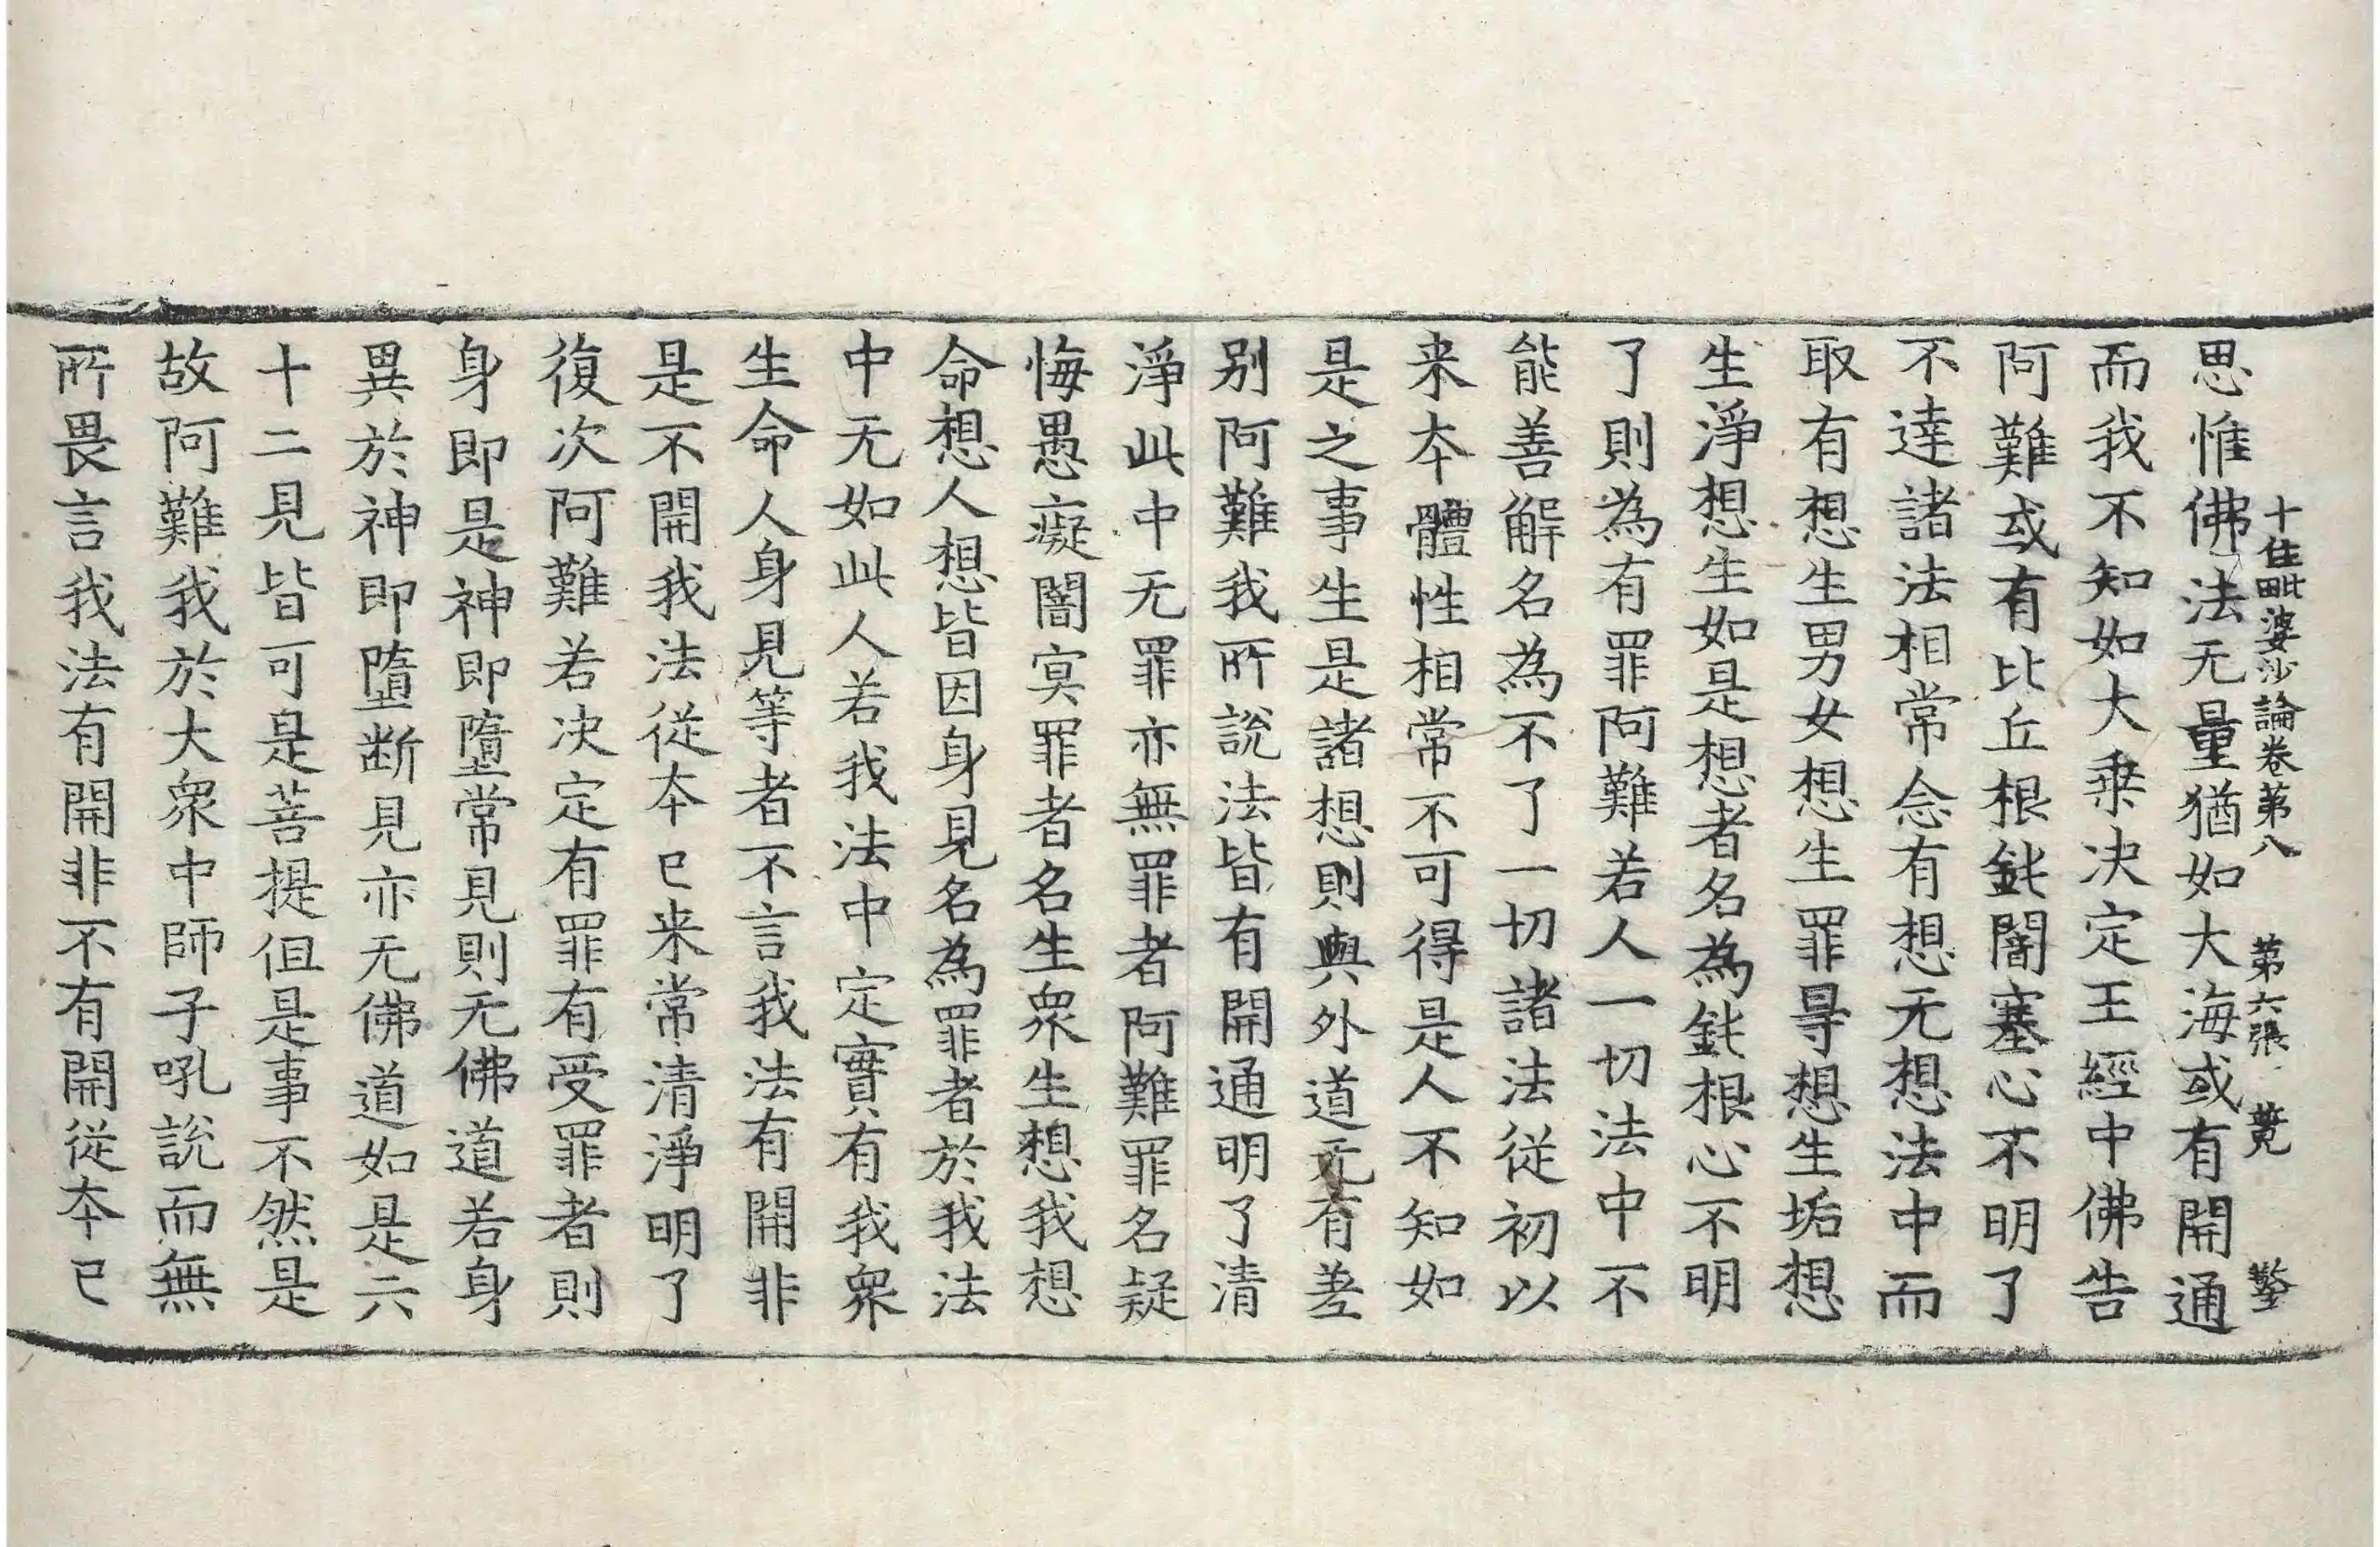 十住毗婆沙論卷第八 第六張 𦾔
思惟佛法无量猶如大海或有開通
而我不知如大乘决定王經中佛告
阿難或有比丘根鈍闇塞心不明了
不達諸法相常念有想无想法中而
取有想生男女想生罪㝵想生垢想
生淨想生如是想者名為鈍根心不明
了則為有罪阿難若人一切法中不
能善解名為不了一切諸法從初以
来夲體性相常不可得是人不知如
是之事生是諸想則與外道无有差
别阿難我所說法皆有開通明了清
淨此中无罪亦無罪者阿難罪名疑
悔愚癡闇㝠罪者名生衆生想我想
命想人想皆因身見名為罪者於我法
中无如此人若我法中定實有我衆
生命人身見等者不言我法有開非
是不開我法從夲已来常清淨明了
復次阿難若决定有罪有受罪者則
身即是神即墮常見則无佛道若身
異於神即墮断見亦无佛道如是六
十二見皆可是菩提但是事不然是
故阿難我於大衆中師子吼說而無
所畏言我法有開非不有開從夲已